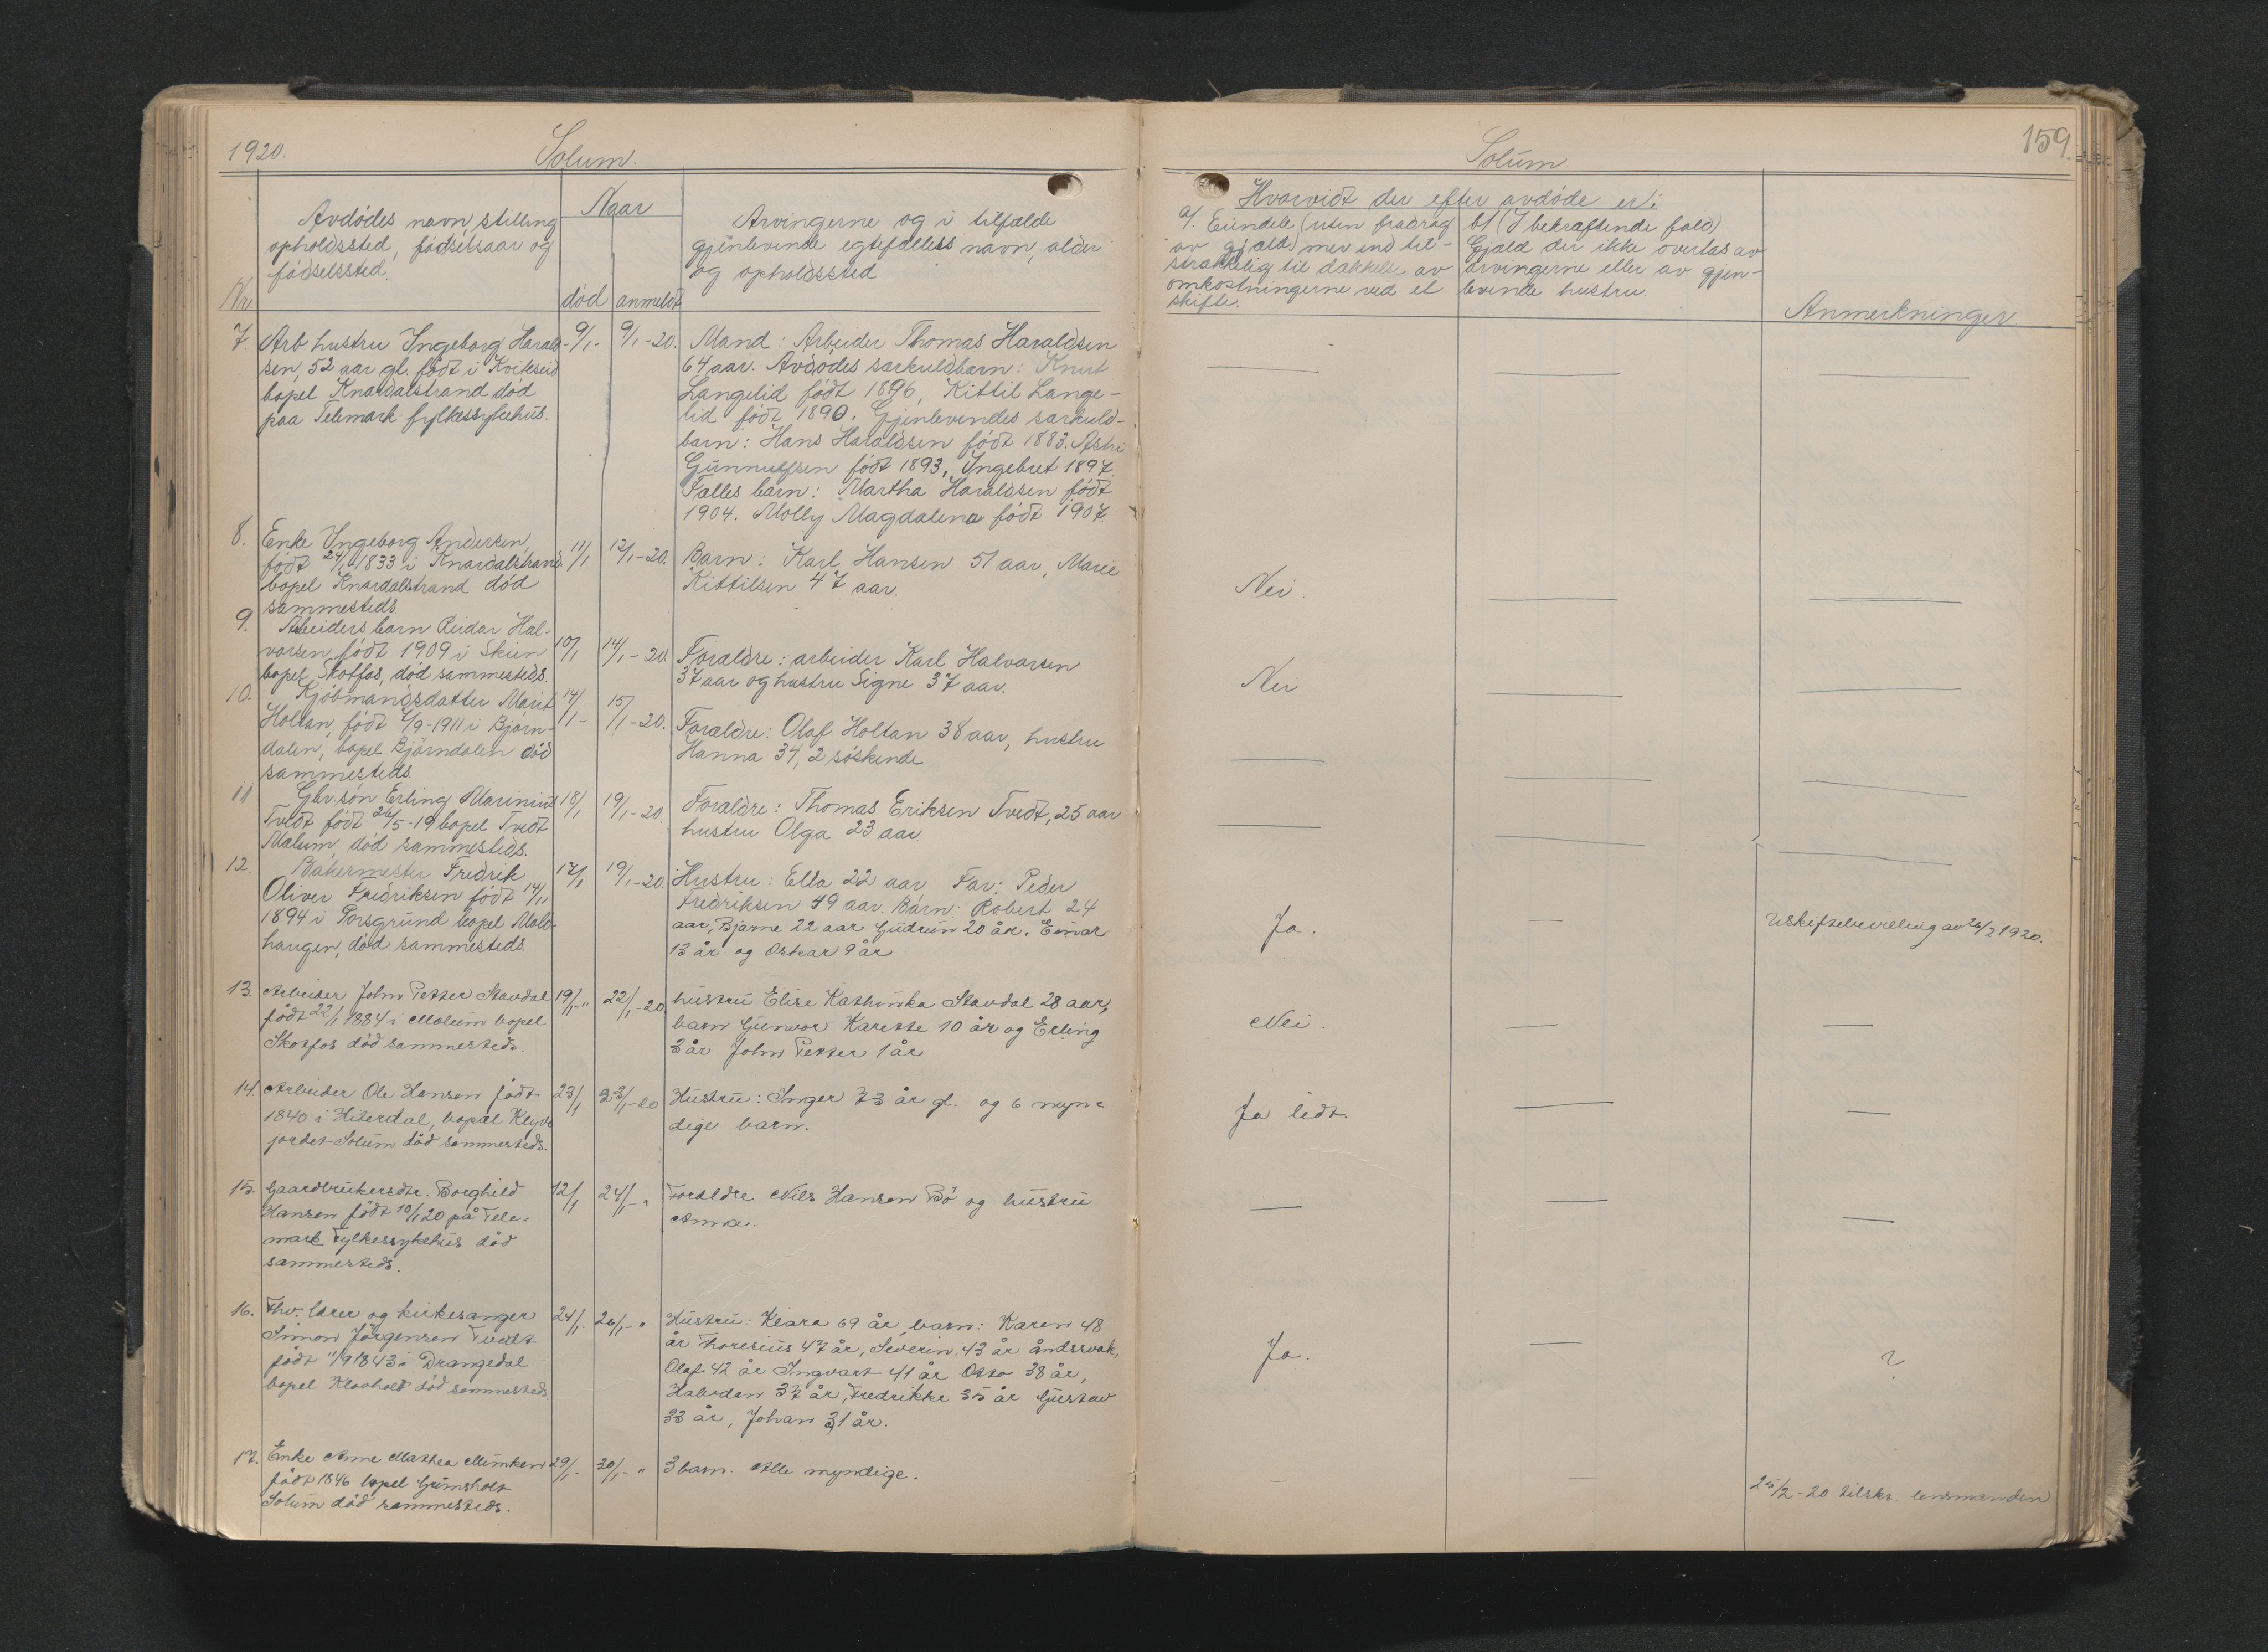 1920.
Solum.
Avdødes navn, stilling
opholdssted, fødselsaar og
fødselssted.
Nr.
Naar
død anmeldt
Arvingerne og i tilfælde
gjenlevende egtefælless navn, alder
og opholdssted
7. Arb. hustru Ingeborg Harald-
sen, 52 aar gl. født i Kviteseid
bopel Knardalstrand død
paa Telemark fylkessykehus.
9/1- 9/1-20.
Mand: Arbeider Thomas Haraldsen
64 aar. Avdødes særkuldbarn: Knut
Langelid født 1896, Kittil Lange-
lid født 1890. Gjenlevendes særkuld-
barn: Hans Haraldsen født 1883. Astri
Gunnulfsen født 1893, Ingebret 1897.
Fælles barn: Martha Haraldsen født
1904. Molly Magdalena født 1907.
8. Enke Ingeborg Andersen,
født 24/1 1833 i Knardalstrand
bopel Knardalstrand død
sammesteds.
11/1 12/1-20.
Barn: Karl Hansen 51 aar, Marie
Kittilsen 47 aar.
9. Arbeiders barn Reidar Hal-
vorsen født 1909 i Skien
bopel Skotfos, død sammesteds.
10/1 14/1-20
Forældre: arbeider Karl Halvorsen
37 aar og hustru Signe 37 aar.
10. Kjøbmandsdatter Marit
Holtan, født /9-1911 i Bjørn-
dalen, bopel Bjørndalen død
sammesteds.
14/1- 15/1-20.
Forældre: Olaf Holtan 38 aar, hustru
Hanna 34, 2 søskende
11 Gbr. søn Erling Marinius
Tvedt født 26/5-19 bopel Tvedt
Mælum død sammesteds.
18/1 19/1-20.
Forældre: Thomas Eriksen Tvedt, 25 aar
hustru Olga 23 aar.
12. Bakermester Fredrik
Oliver Fredriksen født 14/11
1894 i Porsgrund bopel Mold-
haugen, død sammesteds.
17/1 19/1-20.
Hustru: Ella 22 aar Far: Peder
Fredriksen 49 aar. Barn: Robert 24
aar, Bjarne 22 aar Gudrun 20 år. Einar
13 år og Oskar 9 år
13. Arbeider John Petter Stavdal
født 22/1 1884 i Mælum bopel
Skotfos død sammesteds.
19/1-" 22/1-20
hustru Elise Kathinka Stavdal 28 aar,
barn Gunvor Karette 10 år og Erling
3 år John Petter 1 år
14. Arbeider Ole Hansen født
1840 i Hiterdal, bopæl Klyve
jordet Solum død sammesteds.
23/1 23/1-20
Hustru: Inger 73 år gl. og 6 myn=
dige barn.
15. Gaardbrukersdtr. Borghild
Hansen født 10/1 20 på Tele=
mark Fylkessykehus død
sammesteds.
12/1 24/1-"
Forældre Nils Hansen Bö og hustru
Anna.
16. Fhv. lærer og kirkesanger
Simon Jörgensen Tvedt
født 11/9 1843 i Drangedal
bopel Klovholt død sammesteds.
24/1. 26/1-"
Hustru: Klara 69 år, barn: Karen 48
år Thoresius 47 år, Severin 43 år åndssvak,
Olaf 42 år Ingvart 41 år Otto 38 år,
Halvdan 37 år, Fredrikke 35 år Gustav
33 år, Johan 31 år.
17. Enke Anne Mathea Munken
født 1846 bopel Gumsholt
Solum død sammesteds.
29/1- 30/1-"
3 barn. Alle myndige.
Solum
159.
Hvorvidt der efter avdøde er:
a/. Eiendele (uten fradrag
av gjæld) mer end til-
strækkelig til dækkelse av
omkostningerne ved et
skifte.
b/ (I bekræftende fald)
Gjæld der ikke overtas av
arvingerne eller av gjen-
levende hustru.
Anmerkninger
Nei.
Nei
Ja.
Uskiftebevilling av 26/2 1920.
Nei.
Ja lidt.
Ja.
?
25/2-20 tilskr. lensmanden